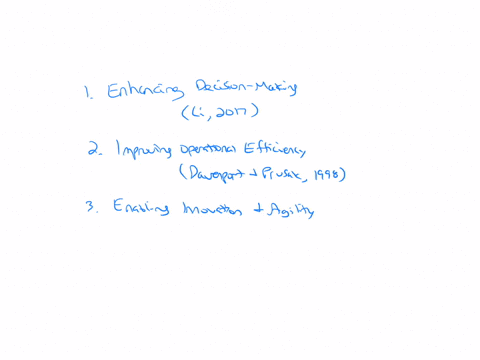 1. Enhancing Decison-Making
(Li, 2017)
2. Improving Operational Efficiency
(Davenport & Prusak, 1998)
3. Enabling Innovation & Agility